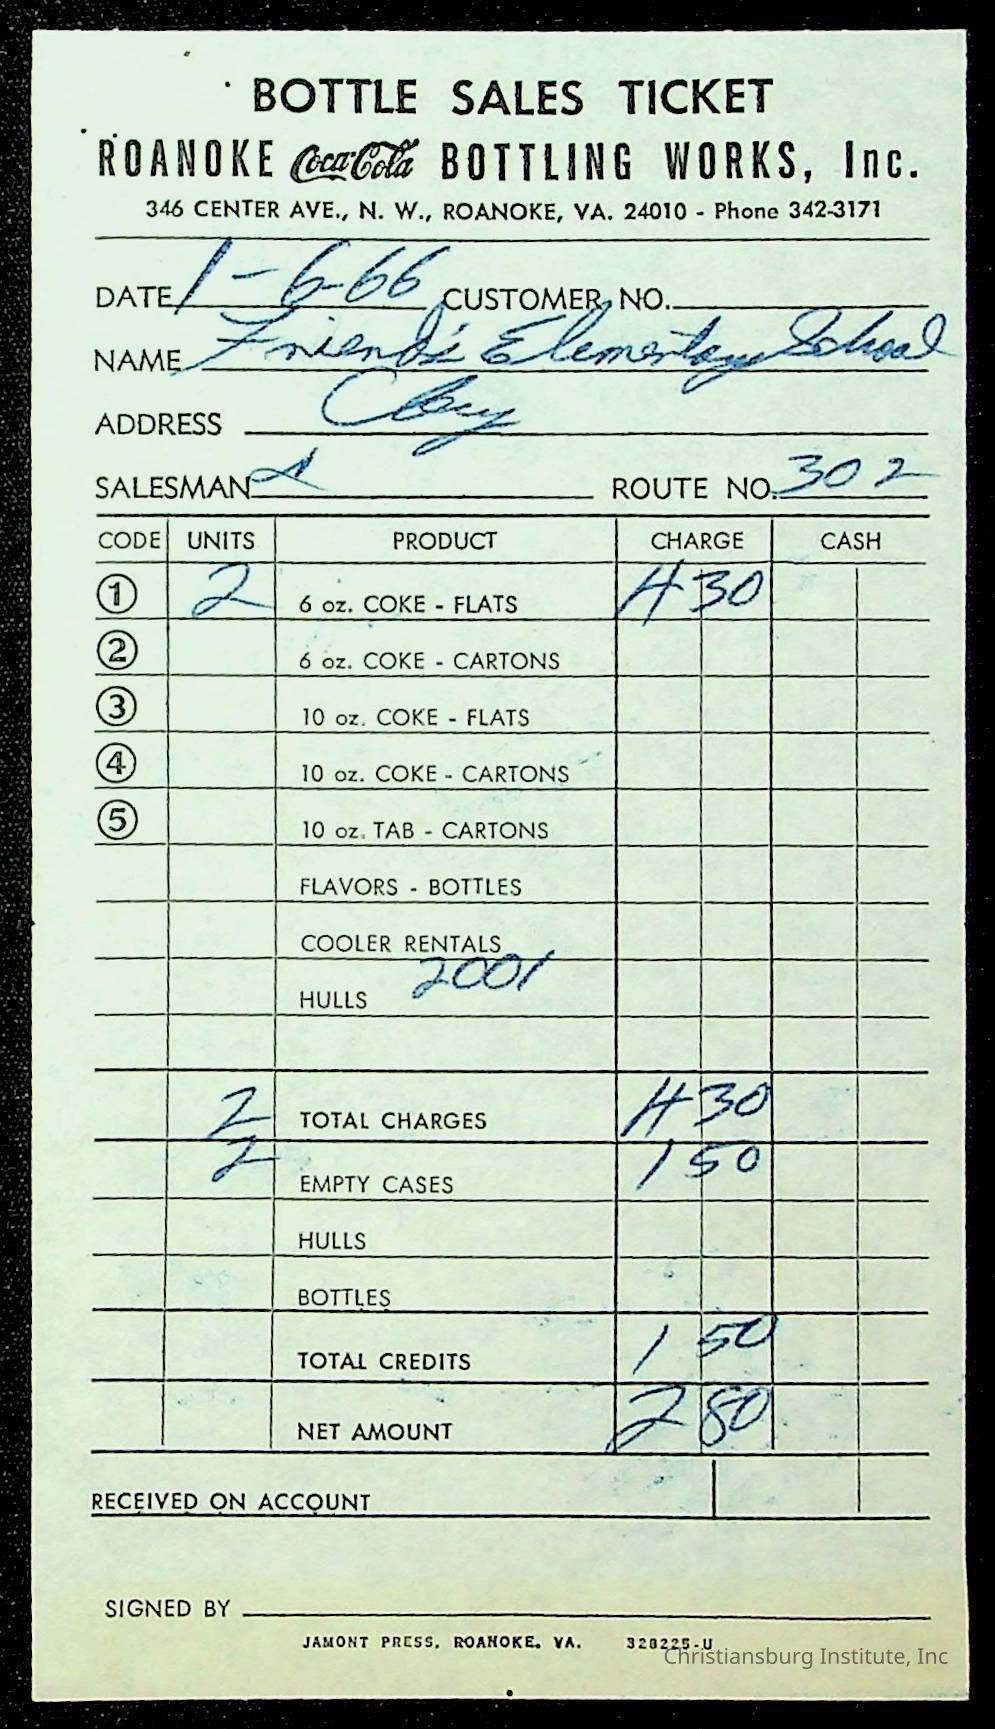 BOTTLE SALES TICKET
ROANOKE Coca-Cola BOTTLING WORKS, Inc.
346 CENTER AVE., N. W., ROANOKE, VA. 24010 - Phone 342-3171
DATE 1-6-66 CUSTOMER NO.
NAME Friend's Elementary School
ADDRESS
SALESMAN ROUTE NO. 302
CODE UNITS PRODUCT CHARGE CASH
1 2 6 oz. COKE - FLATS 4 30
2 6 oz. COKE - CARTONS
3 10 oz. COKE - FLATS
4 10 oz. COKE - CARTONS
5 10 oz. TAB - CARTONS
FLAVORS - BOTTLES
COOLER RENTALS
HULLS 2001
2 TOTAL CHARGES 4 30
2 EMPTY CASES 1 50
HULLS
BOTTLES
TOTAL CREDITS 1 50
NET AMOUNT 2 80
RECEIVED ON ACCOUNT
SIGNED BY
JAMONT PRESS, ROANOKE, VA. 328225-U
Christiansburg Institute, Inc